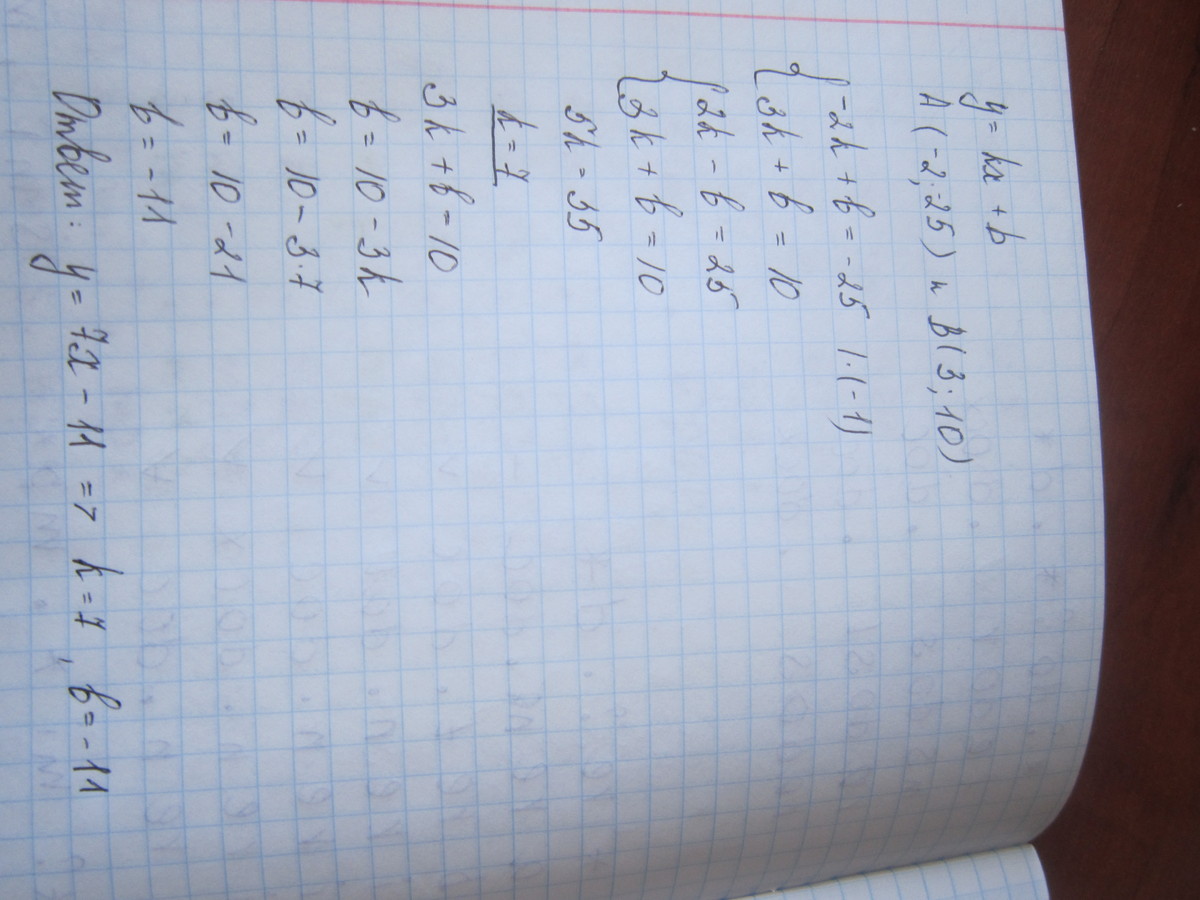 y = kx + b
A(-2;-25) и B(3;10)
{ -2k + b = -25 | ·(-1)
3k + b = 10
{ 2k - b = 25
3k + b = 10
5k = 35
k = 7
3k + b = 10
b = 10 - 3k
b = 10 - 3·7
b = 10 - 21
b = -11
Ответ: y = 7x - 11 => k = 7, b = -11